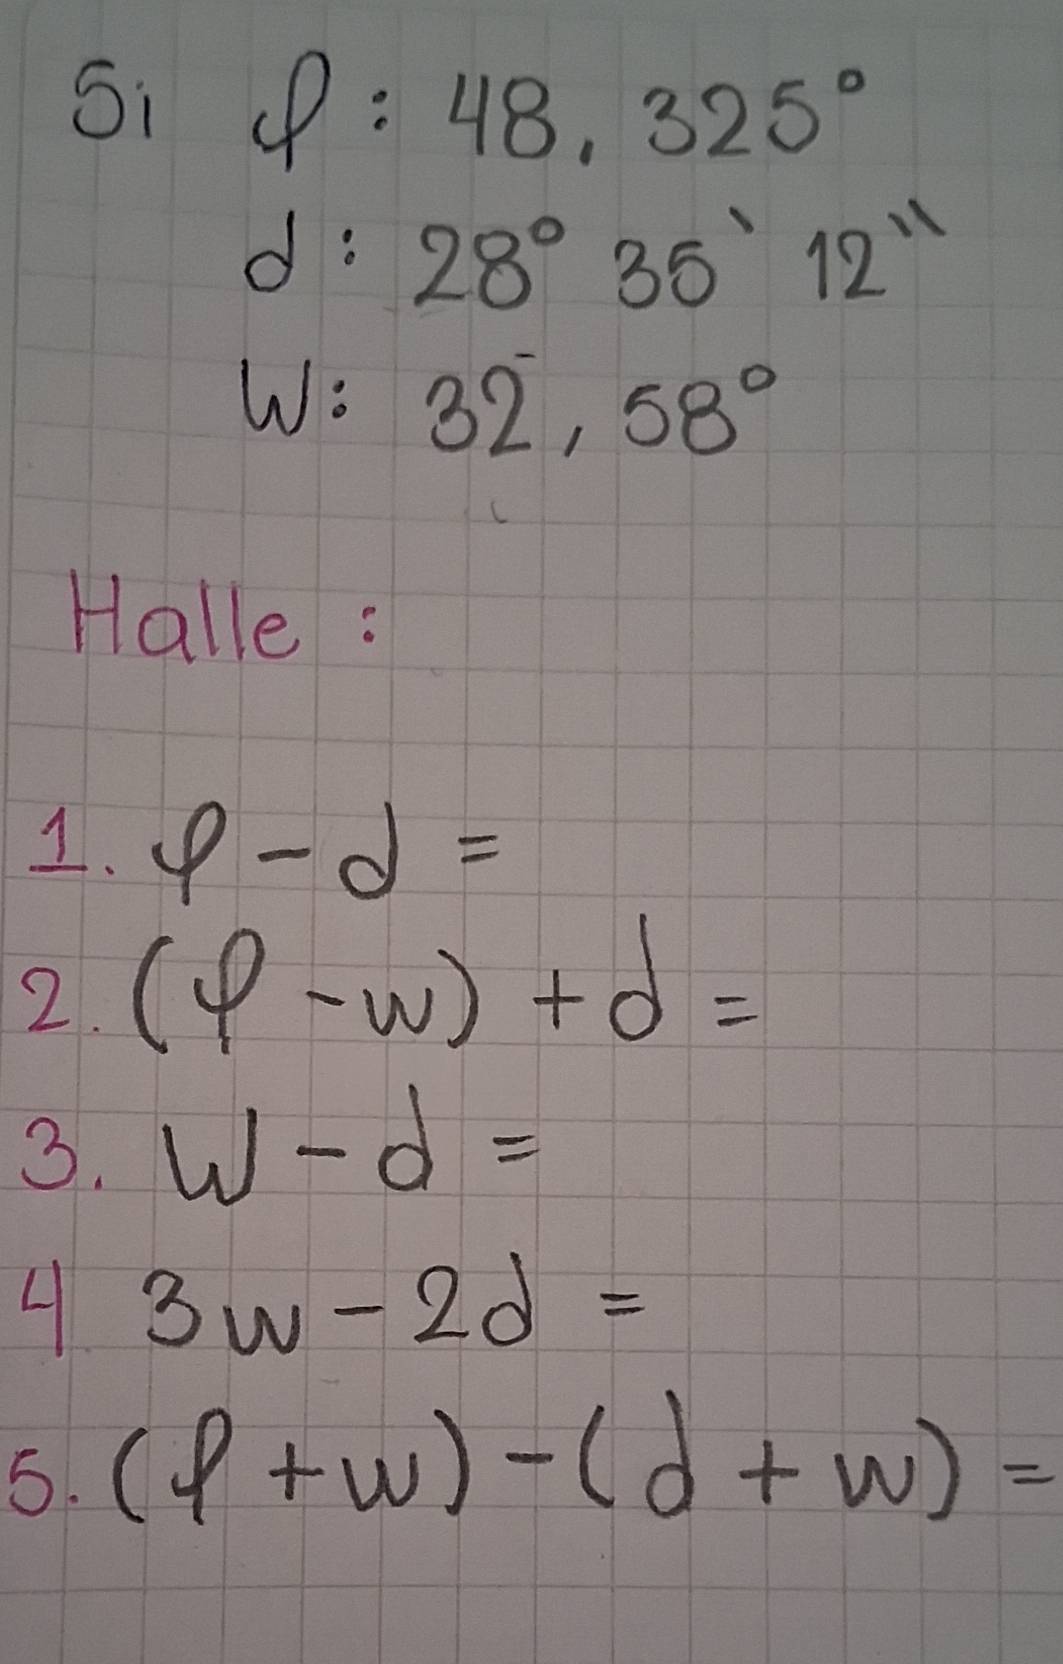 Si φ: 48,325°
d: 28° 35' 12"
W: 32,58°
Halle:
1. φ - d =
2. (φ - w) + d =
3. W - d =
4 3w - 2d =
5. (φ + w) - (d + w) =